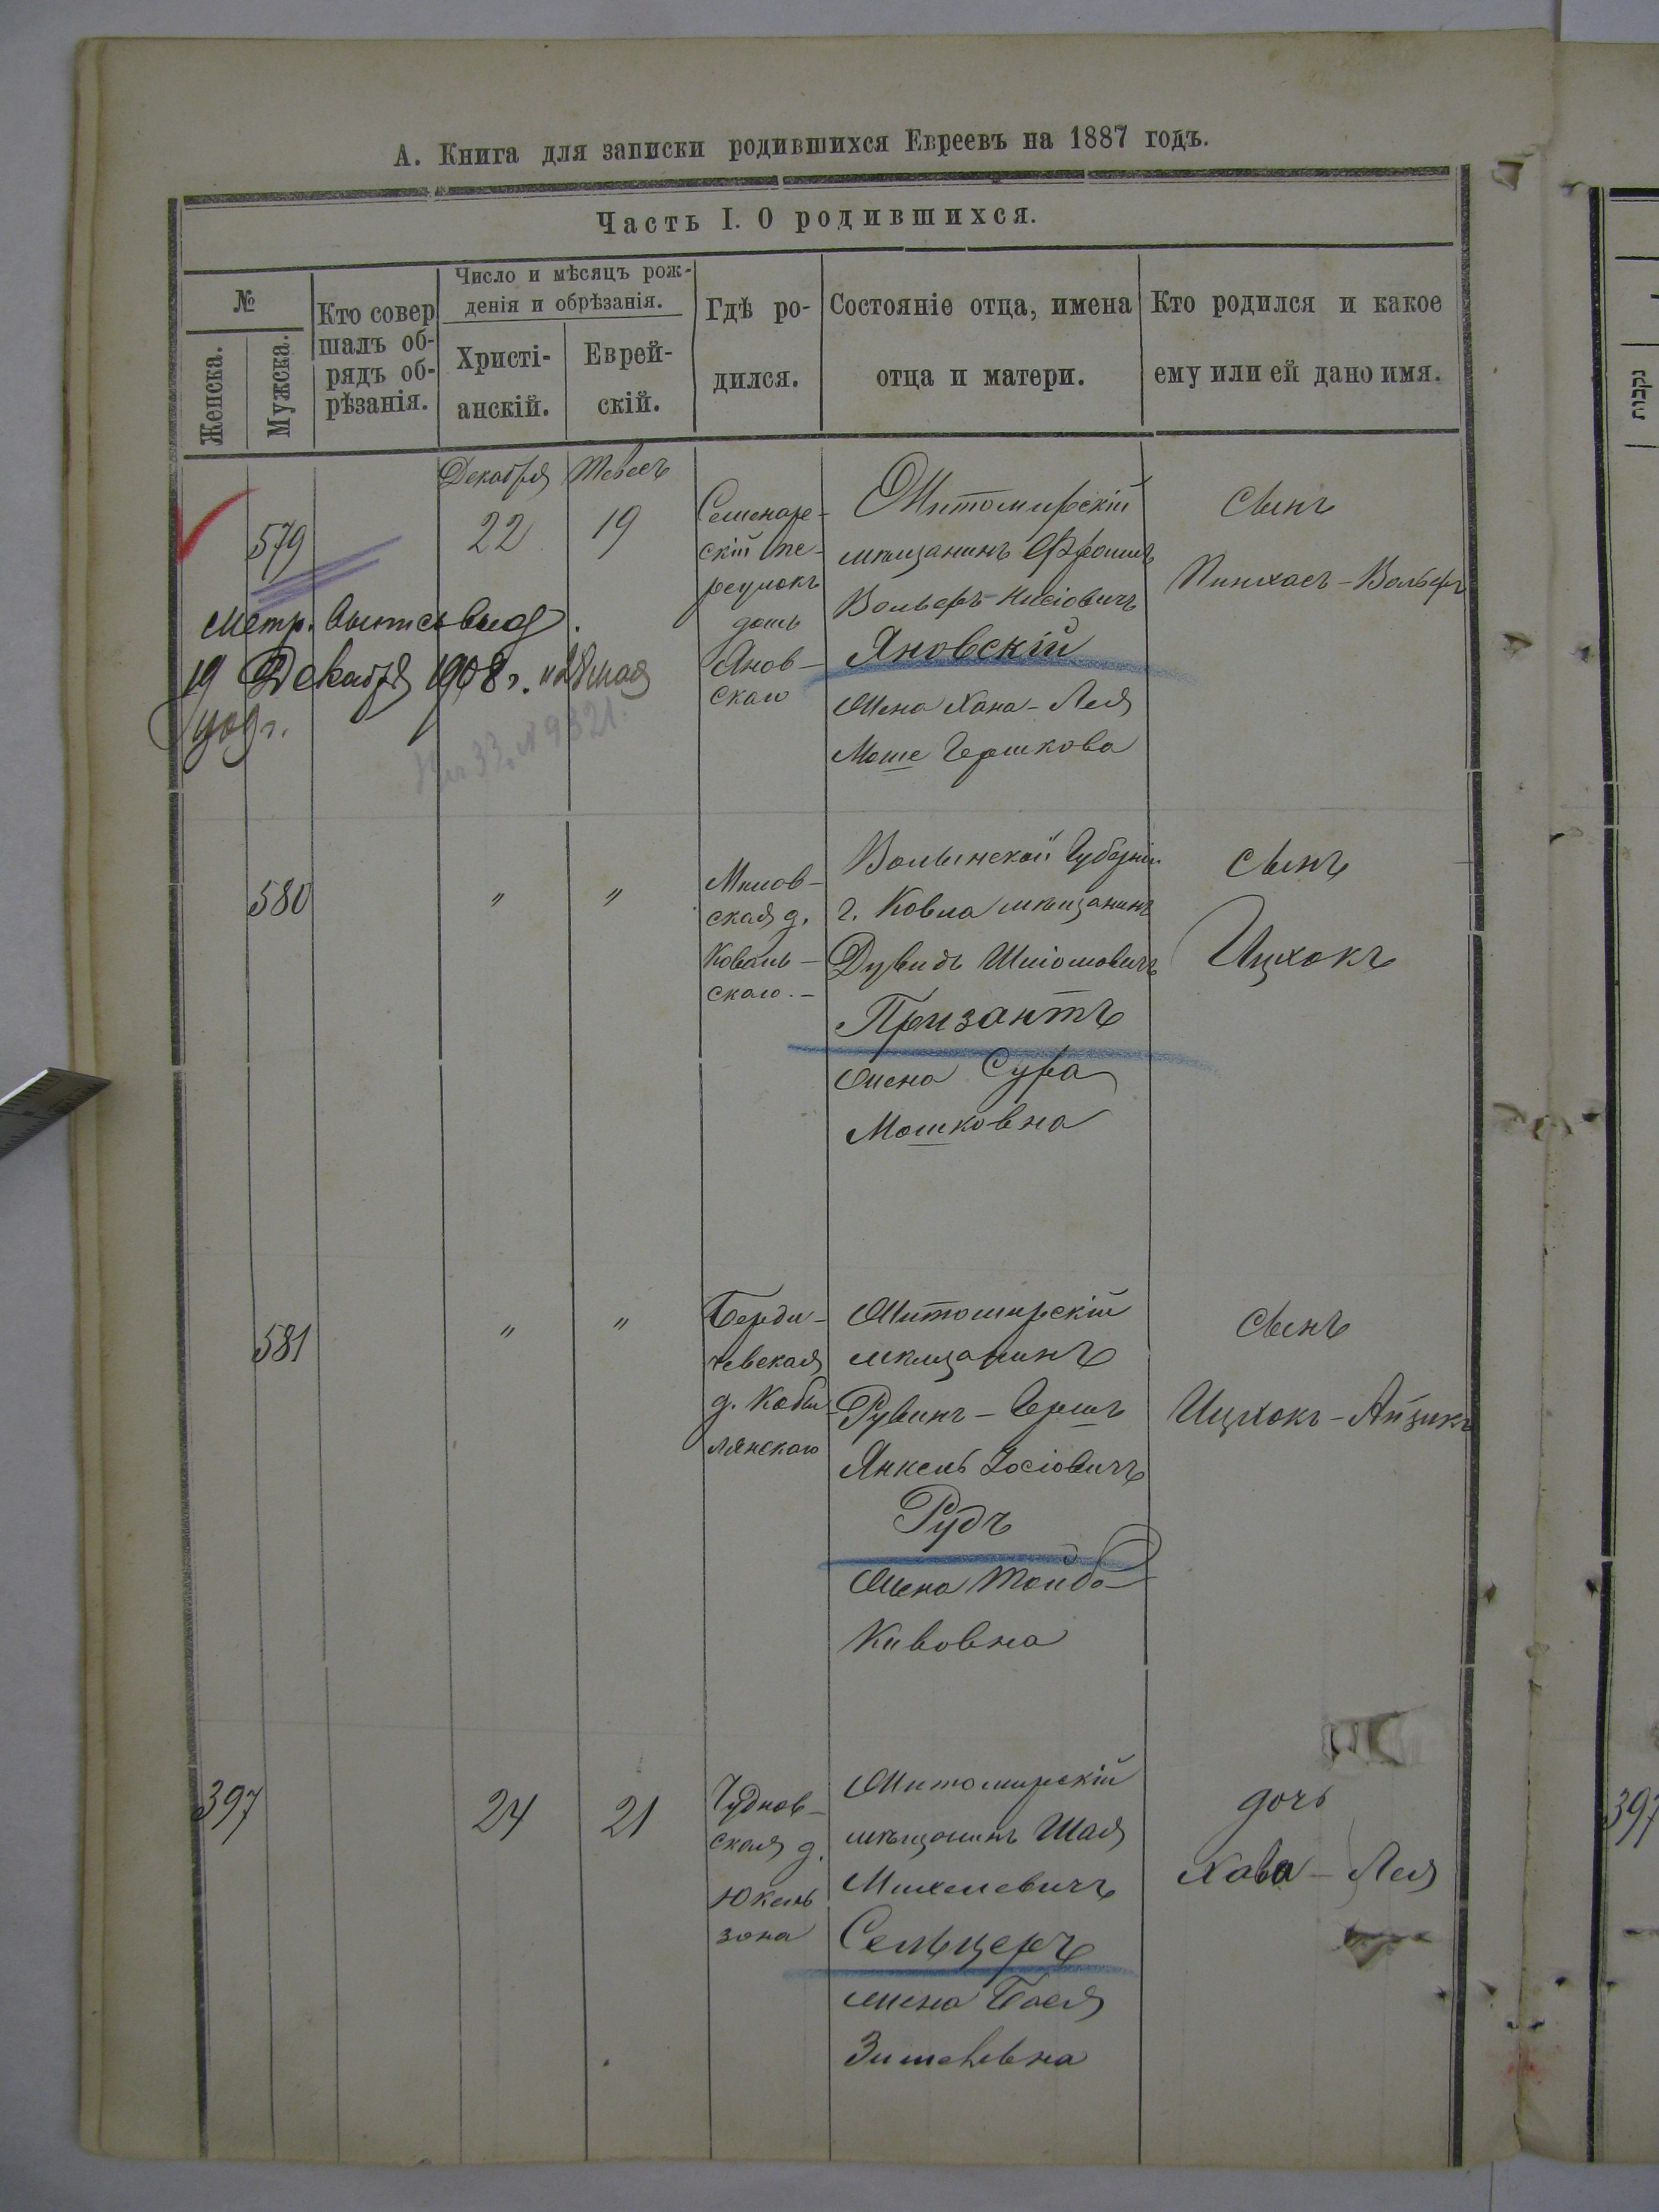 А. Книга для записки родившихся Евреевъ на 1887 годъ.
Часть I. О родившихся.
№
Женска.
Мужска.
Кто совер
шалъ об-
рядъ об-
рѣзанія.
Число и мѣсяцъ рож-
денія и обрѣзанія.
Христі-
анскій.
Еврей-
скій.
Гдѣ ро-
дился.
Состояніе отца, имена
отца и матери.
Кто родился и какое
ему или ей дано имя.
Декабря
Тевесъ
579
22
19
Семенаре-
скій пе-
реулокъ
домъ
Янов-
скаго
Житомирскій
мѣщанинъ Фроимъ
Вольфъ Нисіовичъ
Яновскій
Жена Хана-Лея
Моше Гершкова
Сынъ
Пинхасъ-Вольфъ
Метр. Выпись выд.
19 Декабря 1908 г. и 28 мая
1909 г.
№ 9321.
580
"
"
ская д.
Коваль-
скаго.-
Волынской Губерніи
г. Ковла мѣщанинъ
Дувидъ Шліомовичъ
Призантъ
Жена Сура
Мошковна
Сынъ
Ицхокъ
581
"
"
Берди-
чевская
д. Кобы-
лянскаго
Житомирскій
мѣщанинъ
Рувинъ-Гершъ
Янкель Іосіовичъ
Рудъ
Жена Тойба
Кивовна
Сынъ
Ицхокъ-Айзикъ
397
24
21
Чуднов-
ская д.
Юкель
зона
Житомирскій
мѣщанинъ Шая
Михелевичъ
Сельцеръ
жена Бася
Зиш
дочь
Хава-Лея
נקבות
397